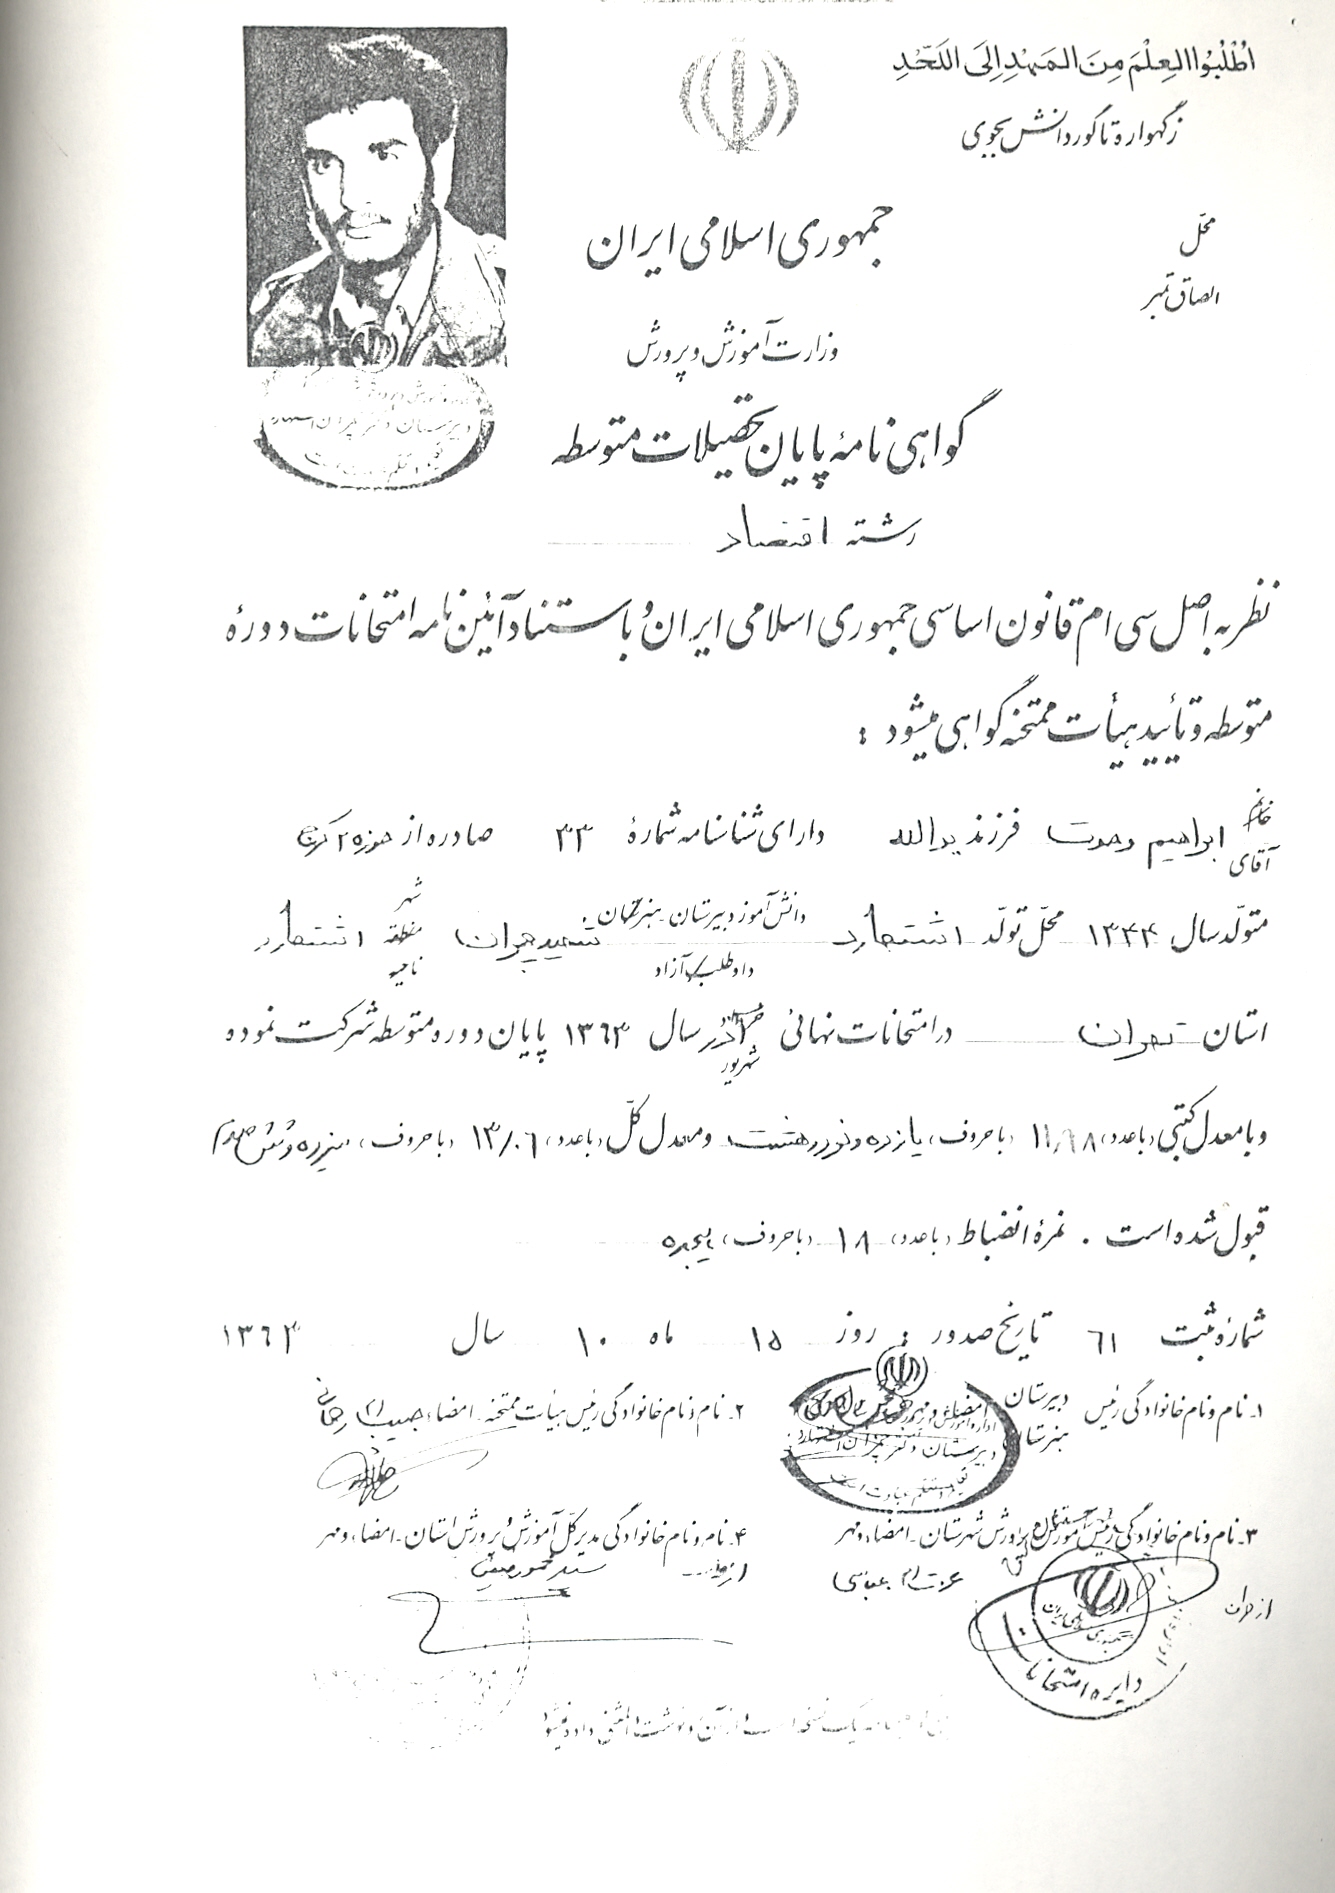 اُطْلُبُوا العِلْمَ مِنَ المَهْدِ اِلَی اللَّحْدِ
ز گهواره تا گور دانش بجوی
محلّ
الصاق تمبر
جمهوری اسلامی ایران
وزارت آموزش و پرورش
گواهی نامهٔ پایان تحصیلات متوسطه
رشته اقتصاد
نظر به اصل سی ام قانون اساسی جمهوری اسلامی ایران و با استناد آئین نامه امتحانات دورهٔ
متوسطه و تأیید هیأت ممتحنه گواهی میشود :
خانم آقای ابراهیم وحدت فرزند یدالله دارای شناسنامه شمارهٔ ۳۳ صادره از حوزه ۲ کرج
متولّد سال ۱۳۴۴ محّل تولّد اشتهارد دانش آموز دبیرستان - هنرستان داوطلب آزاد شهید چمران شهر منطقه ناحیه اشتهارد
استان تهران در امتحانات نهائی خرداد شهریور سال ۱۳۶۳ پایان دوره متوسطه شرکت نموده
و با معدل کتبی (با عدد) ۱۱/۹۸ (با حروف) یازده و نود و هشت و معدل کلّ (با عدد) ۱۳/۰۶ (با حروف) سیزده و شش صدم
قبول شده است . نمرهٔ انضباط (با عدد) ۱۸ (با حروف) هیجده
شمارهٔ ثبت ۶۱ تاریخ صدور : روز ۱۵ ماه ۱۰ سال ۱۳۶۳
۱- نام و نام خانوادگی رئیس دبیرستان هنرستان امضاء و مهر
۲- نام و نام خانوادگی رئیس هیأت ممتحنه - امضاء
۳- نام و نام خانوادگی رئیس آموزش و پرورش شهرستان - امضاء و مهر
۴- نام و نام خانوادگی مدیر کلّ آموزش و پرورش استان - امضاء و مهر
از طرف عزت اله عباسی
از طرف سید محمود
جمهوری اسلامی ایران
دایره امتحانات